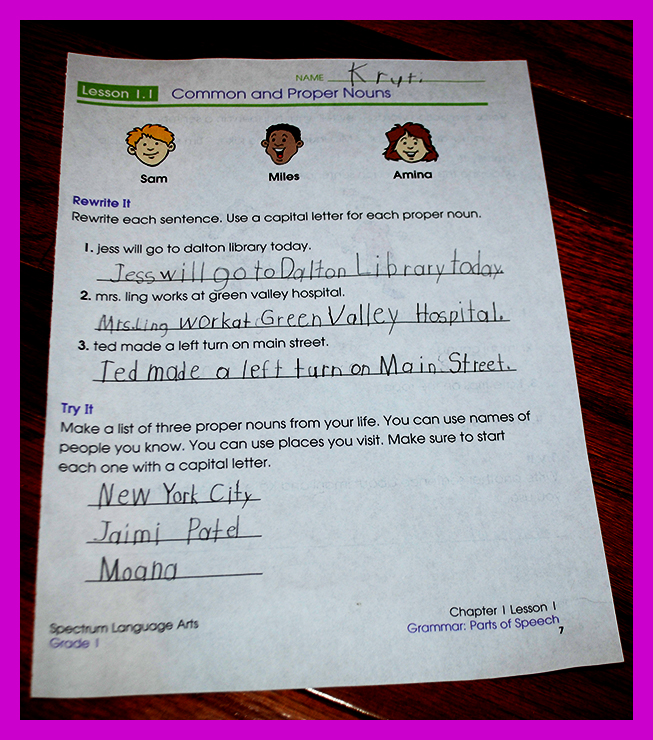 NAME Kryti
Lesson 1.1 Common and Proper Nouns
Sam Miles Amina
Rewrite It
Rewrite each sentence. Use a capital letter for each proper noun.
1. jess will go to dalton library today.
Jess will go to Dalton Library today.
2. mrs. ling works at green valley hospital.
Mrs. Ling work at Green Valley Hospital.
3. ted made a left turn on main street.
Ted made a left turn on Main Street.
Try It
Make a list of three proper nouns from your life. You can use names of
people you know. You can use places you visit. Make sure to start
each one with a capital letter.
New York City
Jaimi Patel
Moana
Spectrum Language Arts
Grade 1
Chapter 1 Lesson 1
Grammar: Parts of Speech
7